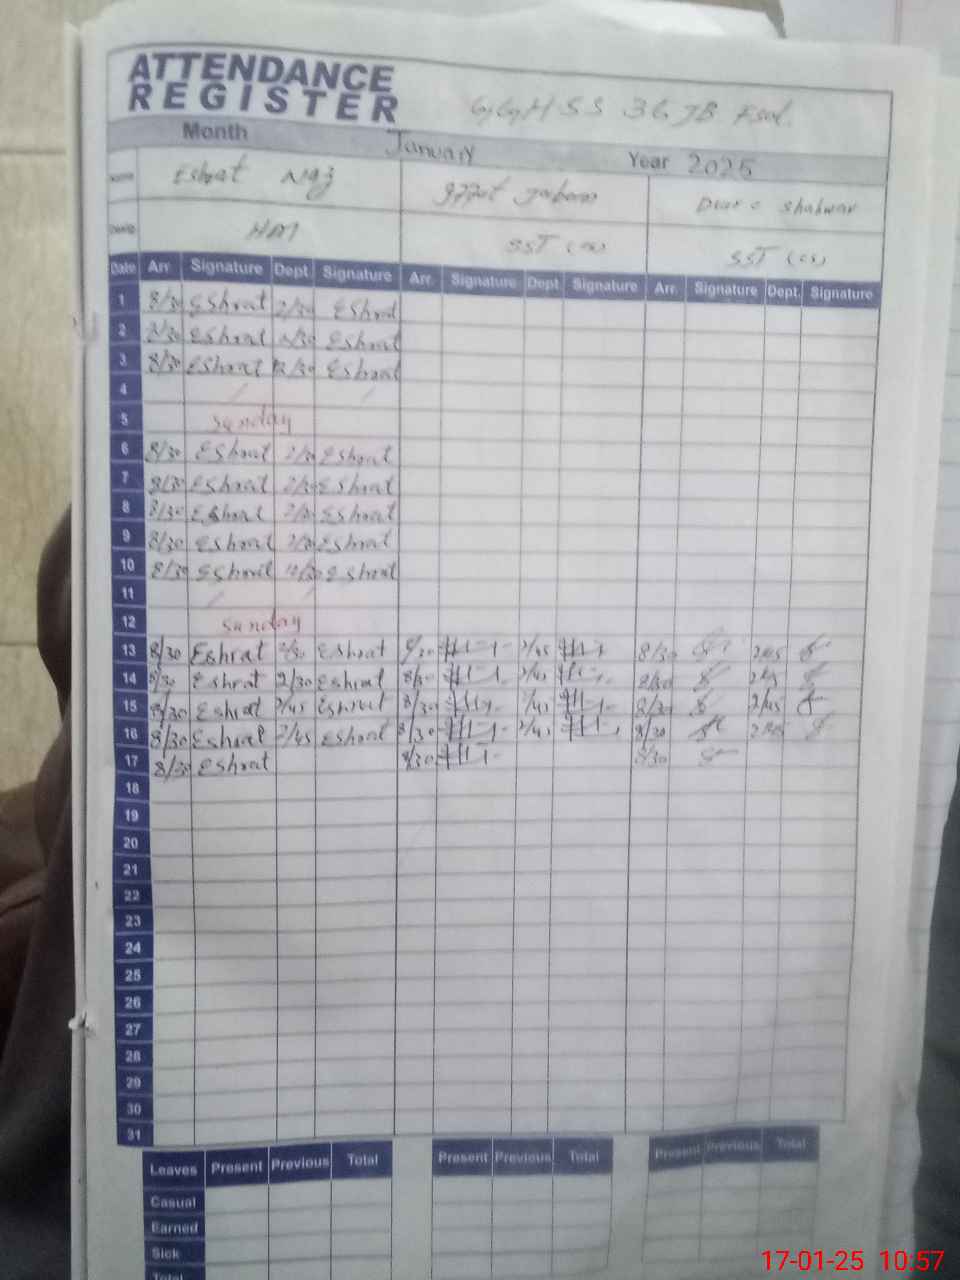 ATTENDANCE
REGISTER
GGHSS 36 JB Fsd.
Month January Year 2025
Name Eshrat Naz Iffat Shahwar
Desig HM SST SST
Date Arr. Signature Dept. Signature Arr. Signature Dept. Signature Arr. Signature Dept. Signature
1 8/30 Eshrat 2/30 Eshrat
2 8/30 Eshrat 2/30 Eshrat
3 8/30 Eshrat 12/30 Eshrat
4
5 Sunday
6 8/30 Eshrat 2/30 Eshrat
7 8/30 Eshrat 2/30 Eshrat
8 8/30 Eshrat 2/30 Eshrat
9 8/30 Eshrat 2/30 Eshrat
10 8/30 Eshrat 12/30 Eshrat
11
12 Sunday
13 8/30 Eshrat 2/30 Eshrat 8/30 2/45 8/30 2/45
14 8/30 Eshrat 2/30 Eshrat 8/30 2/45 8/30 2/45
15 8/30 Eshrat 2/45 Eshrat 8/30 2/45 8/30 2/45
16 8/30 Eshrat 2/45 Eshrat 8/30 2/45 8/30 2/45
17 8/30 Eshrat 8/30 8/30
18
19
20
21
22
23
24
25
26
27
28
29
30
31
Leaves Present Previous Total Present Previous Total Present Previous Total
Casual
Earned
Sick
Total
17-01-25 10:57